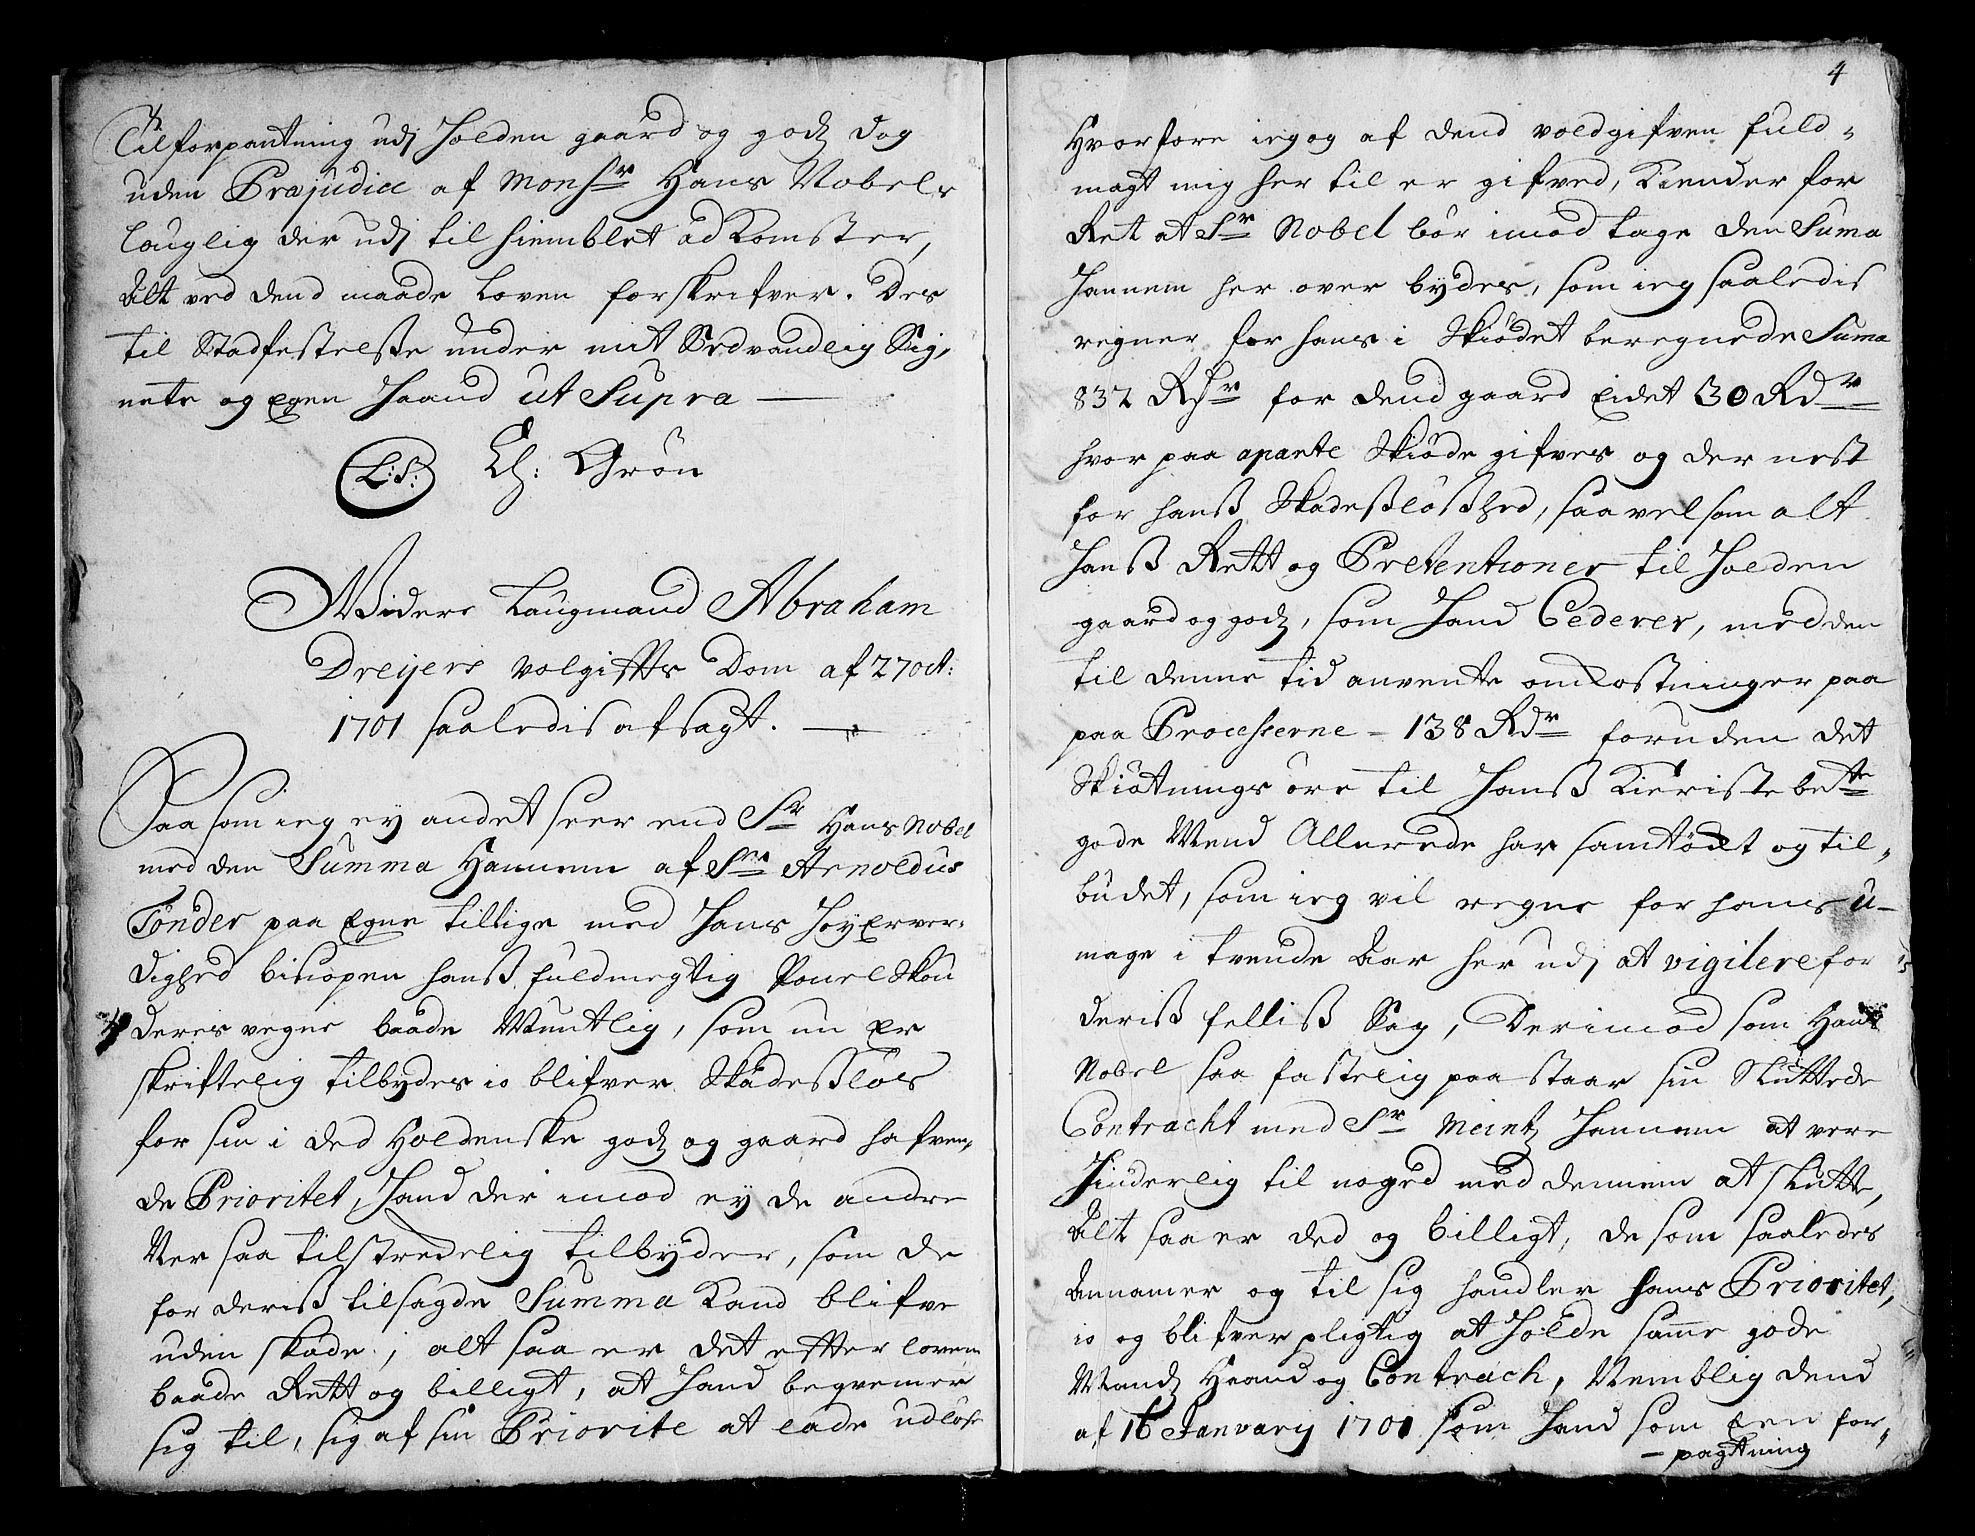 Tilforpantning udj Holden gaard og godz dog
uden Præjudice af Monsr Hans Nobels
lauglig der udj til hiemblet adkomster,
Alt ved dend maade Loven forskrifver. Des
til Stadfestelße under mit Sedvandlig Sig¬
nete og Egen Haand ut Supra —
L:S: Ch: Grön
Widere Laugmand Abraham
Dreyers volgiffts Dom af 27 oct:
1701 saaledis afsagt. —
Saa som ieg ey andet seer end Sr Hans Nobel
med den Summa Hannem af Sr Arnoldus
Tönder paa Egne tillige med Hans HöyErver¬
dighed bishopen hanß fuldmegtig Pouel Skou
deres vegne baade Muntlig, som nu Er
skriftelig tilbydes io blifver Skadeßlös
for sin i ded Holdenske godz og gaard hafven¬
de Prioritet, Hand der imod ey de andre
Ver saa tilstredelig tilbyder, som de
for deriß tilsagde Summa Kand blifve
uden skade, alt saa er det efter loven
baade Rett og billigt, at Hand beqvemer
sig til, sig af sin Priorite at lade udlöse
4
Hvorfore ieg og af dend voldgifven fuld¬
magt mig her til er gifved, Kiender for
Ret at Sr Nobel bör imod tage den Suma
Hannem her over bydes, som ieg saaledis
regner for hans i Skiödet beregnede Suma
832 Rdr for dend gaard Eidet 30 Rdr
hvor paa aparte Skiöde gifves og der nest
for hanß Skadeßlößhed, saavel som alt
Hanß Rett og Pretentioner til Holden
gaard og godz, som Hand Cederer, med den
til denne tid anvente omkostninger paa
paa Processerne – 138 Rdr foruden det
Skiötnings öre til Hanß Kieriste bette
gode Mend Allerede har samtöckt og til¬
budet, som ieg vil regne for hans u¬
mage i trende Aar her udj at vigilere for
deriß felliß Sag, Derimod som Hans
Nobel saa fastelig paastaar sin Sluttede
Contracht med Sr Meintz Hannem at vere
Hinderlig til noged med dennem at slutte,
Alt saa er ded og billigt, de som saaledes
Annamer og til sig handler hans Prioritet,
io og blifver pligtig at Holde samme gode
Mandz Haand og Contrach, Nemblig dend
af 16 January 1701 som Hand som Een for¬
– pagtning